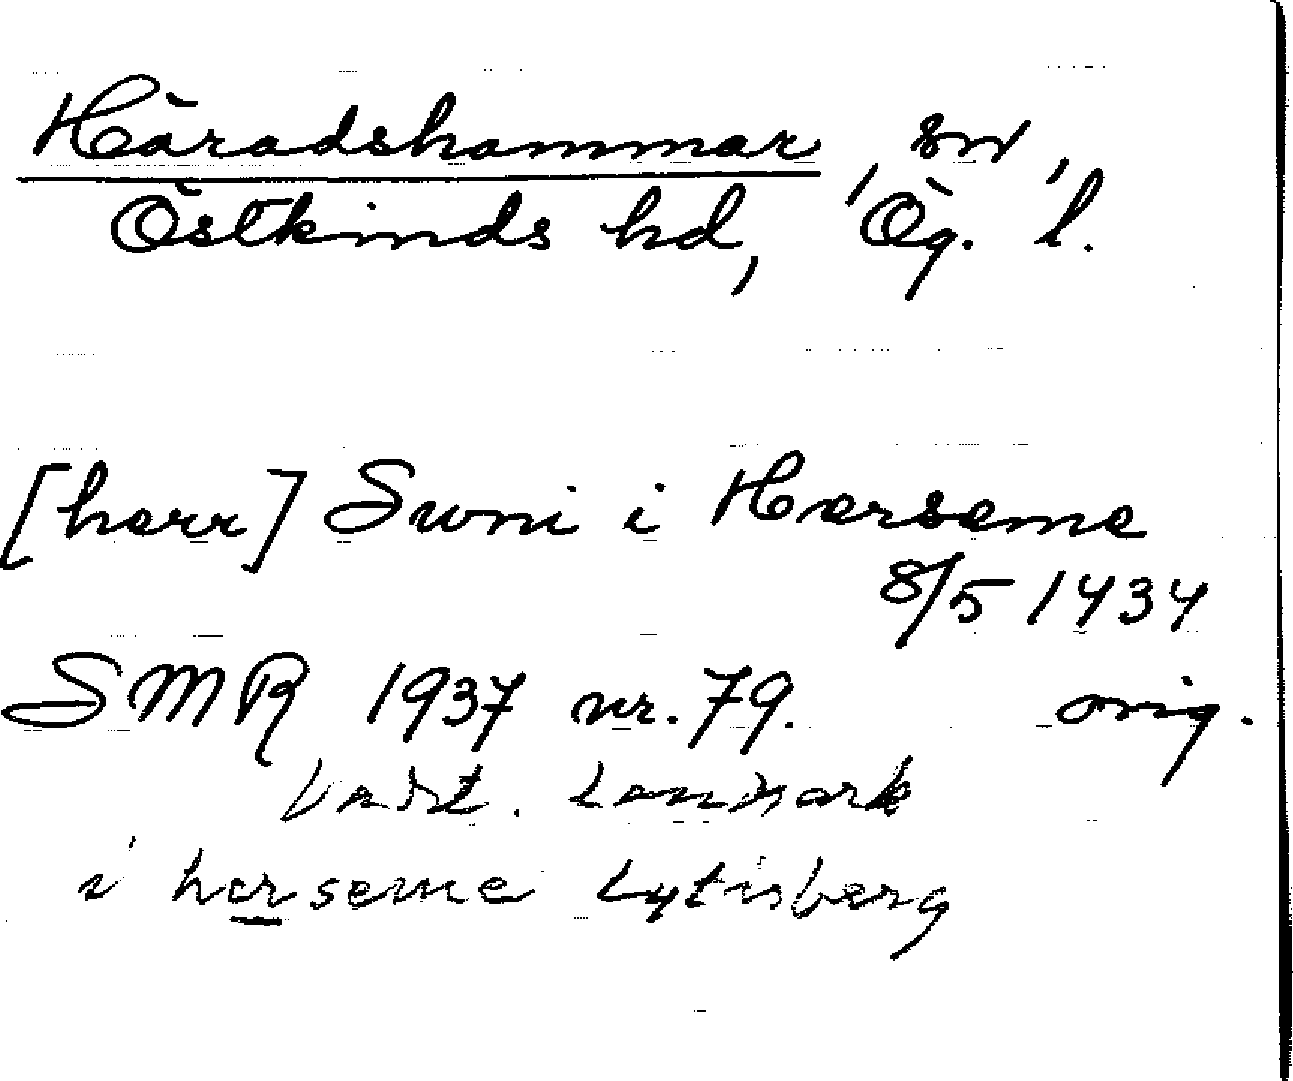 Häradshammar, sn,
Östkinds hd, Ög. l.
[herr] Suni i Hærseme
8/5 1434
SMR 1937 nr. 79. orig.
Landmark
i hærseme Lytisberg